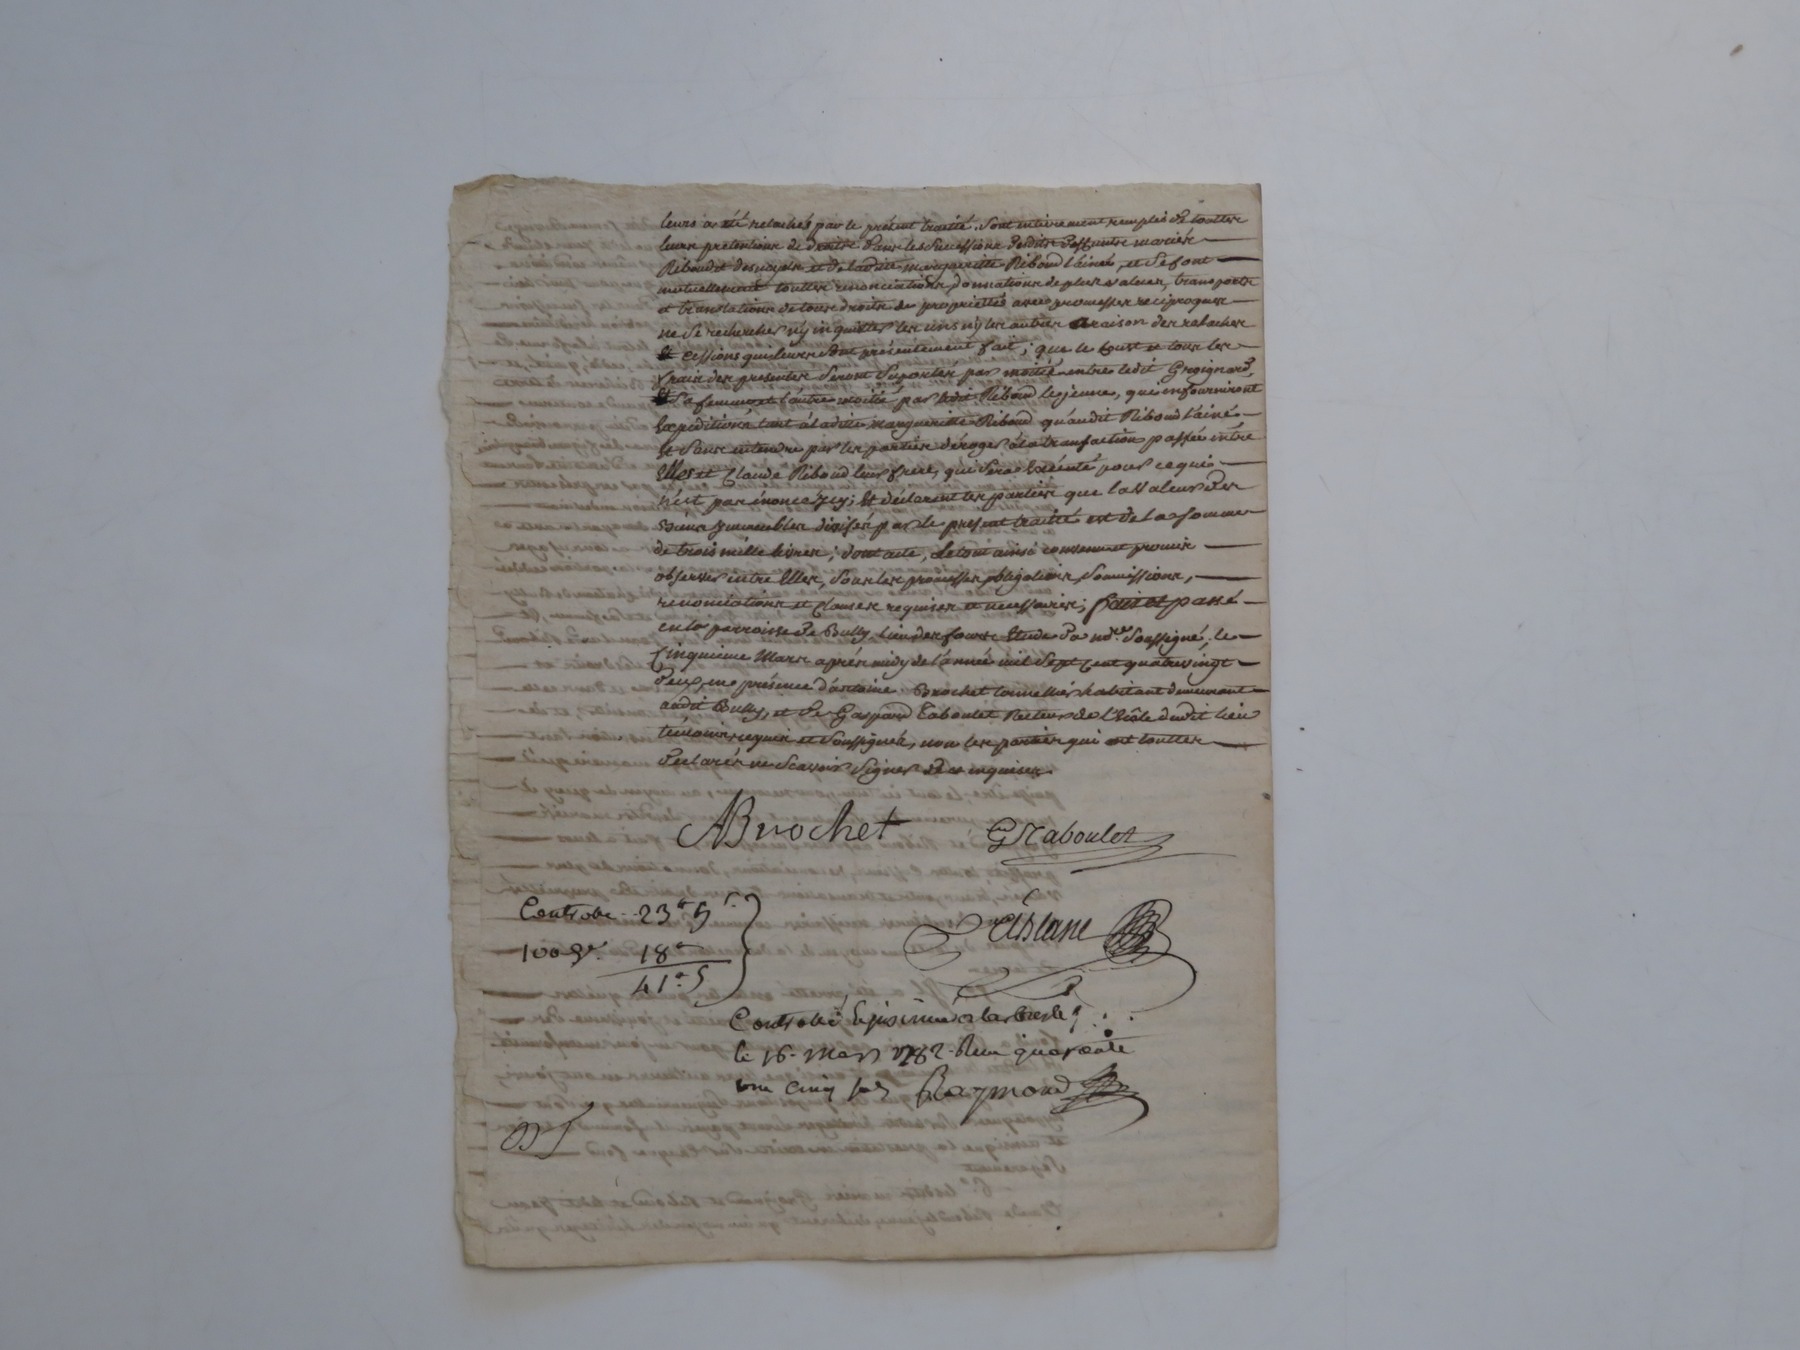 leurs a été relachés par le présent traitté. Sont entierement remplis de touttes
leurs pretentions de droits dans les successions desdits deffunts mariés
Riboud et et de ladite marguerite Riboud l'ainée, et se font
mutuellement touttes renonciations, donnations de plus valeur, transports
et translations de tous droits de proprietés avec promesses reciproques
ne se rechercher ny inquietter les uns ny les autres a raison des relaches
Et cessions qui leurs sont présentement fait; que le tout et tous les
frais des presentes seront suportés par moitié entre ledit Grognard,
Et sa femme et l'autre moitié par Riboud le jeune, qui en fourniront
Expeditions tant a ladite marguerite Riboud qu'audit Riboud l'ainé
Et sans entendre par les parties déroger a la transaction passée entre
Elles et Claude Riboud leur frere, qui sera Exécuté pour ce qui
n'est pas énoncé icy; Et déclarent les parties que la valeur des
biens immeubles divisés par le présent traitté est de la somme
de trois mille livres; dont acte, le tout ainsi convenu et promis
observer entre Elles, sous les promesses, obligations, soumissions,
renonciations et clauses requises et necessaires; fait et passé
en la parroisse de Bully, lieu des fours Etude du no.re soussigné, le
cinquieme Mars après midy de l'année mil sept cent quatre vingt
deux, en présence d'antoine Brochet tonnellier habitant demeurant
audit Bully, et de Gaspard Taboulet Recteur de l'Ecole dudit lieu
témoins requis et soussignés, non les parties qui ont touttes
déclarés ne scavoir signer de ce enquises
ABrochet GTaboulet
Controlle 23 5
100 18
41 5
Controllé le
le 16 mars 1782. Reçu quarante
une cinq sols Raymond